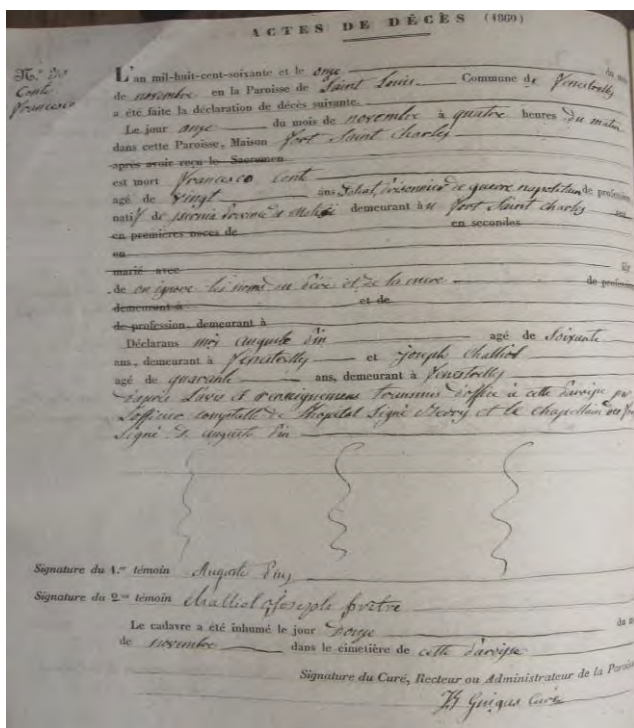 ACTES DE DÉCÈS (1860)
N.° 90
Conte
Francesco
L'an mil-huit-cent-soixante et le onze du mois
de novembre en la Paroisse de Saint Louis Commune de Fenestrelly
a été faite la déclaration de décès suivante.
Le jour onze du mois de novembre à quatre heures du matin
dans cette Paroisse, Maison fort Saint Charles
après avoir reçu le Sacremen
est mort Francesco Conte
agé de vingt ans soldat, prisonnier de guerre napolitain de profession
natif de province de demeurant à u fort Saint Charles
en premières noces de en secondes
en
marié avec
de on ignore les noms du père et de la mere de profession
demeurant à et de
de profession, demeurant à
Déclarans moi Auguste Pin agé de Soixante
ans, demeurant à Fenestrelly et Joseph Challiol
agé de quarante ans, demeurant à Fenestrelly
d'après l'avis et renseignemens transmis d'office à cette paroisse par
l'officier comptable de l'hopital Signé et le chapellain des
Signé D. Auguste Pin
Signature du 1.er témoin Auguste Pin
Signature du 2.me témoin Challiol Joseph
Le cadavre a été inhumé le jour douze du m
de novembre dans le cimetière de cette paroisse
Signature du Curé, Recteur ou Administrateur de la Paroisse
Guigas Curé